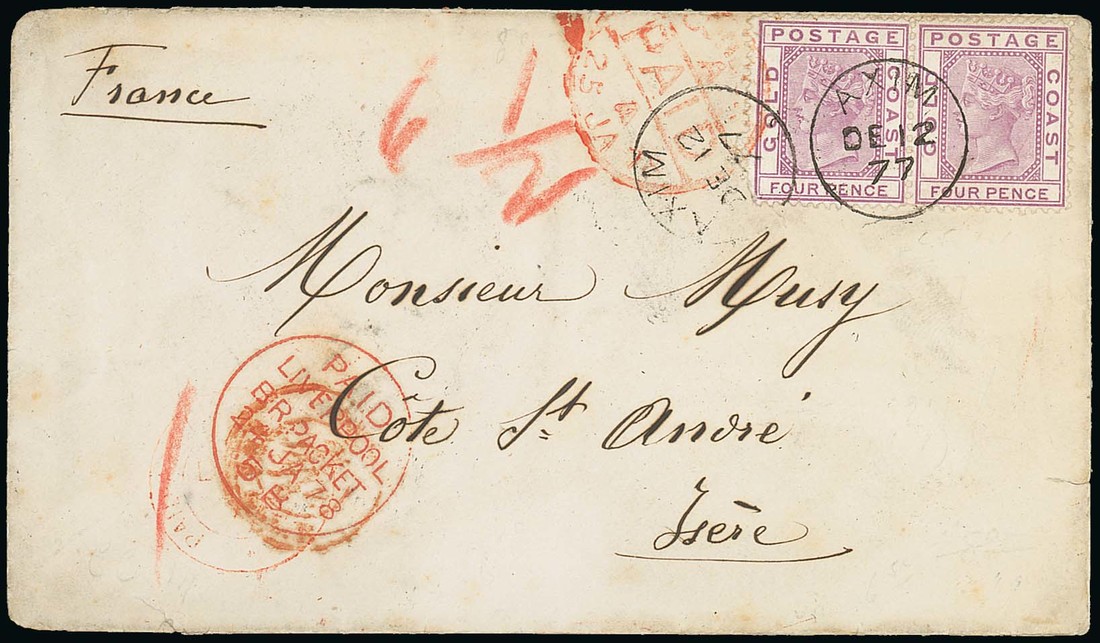 France
6
1/2
PAID
25
JA
POSTAGE
GOLD
COAST
FOUR PENCE
POSTAGE
GOLD
COAST
FOUR PENCE
AXIM
DE 12
77
AXIM
DE 12
77
Monsieur Musy
Côte St. André
Isère
PAID
LIVERPOOL
BR. PACKET
JA 78
1